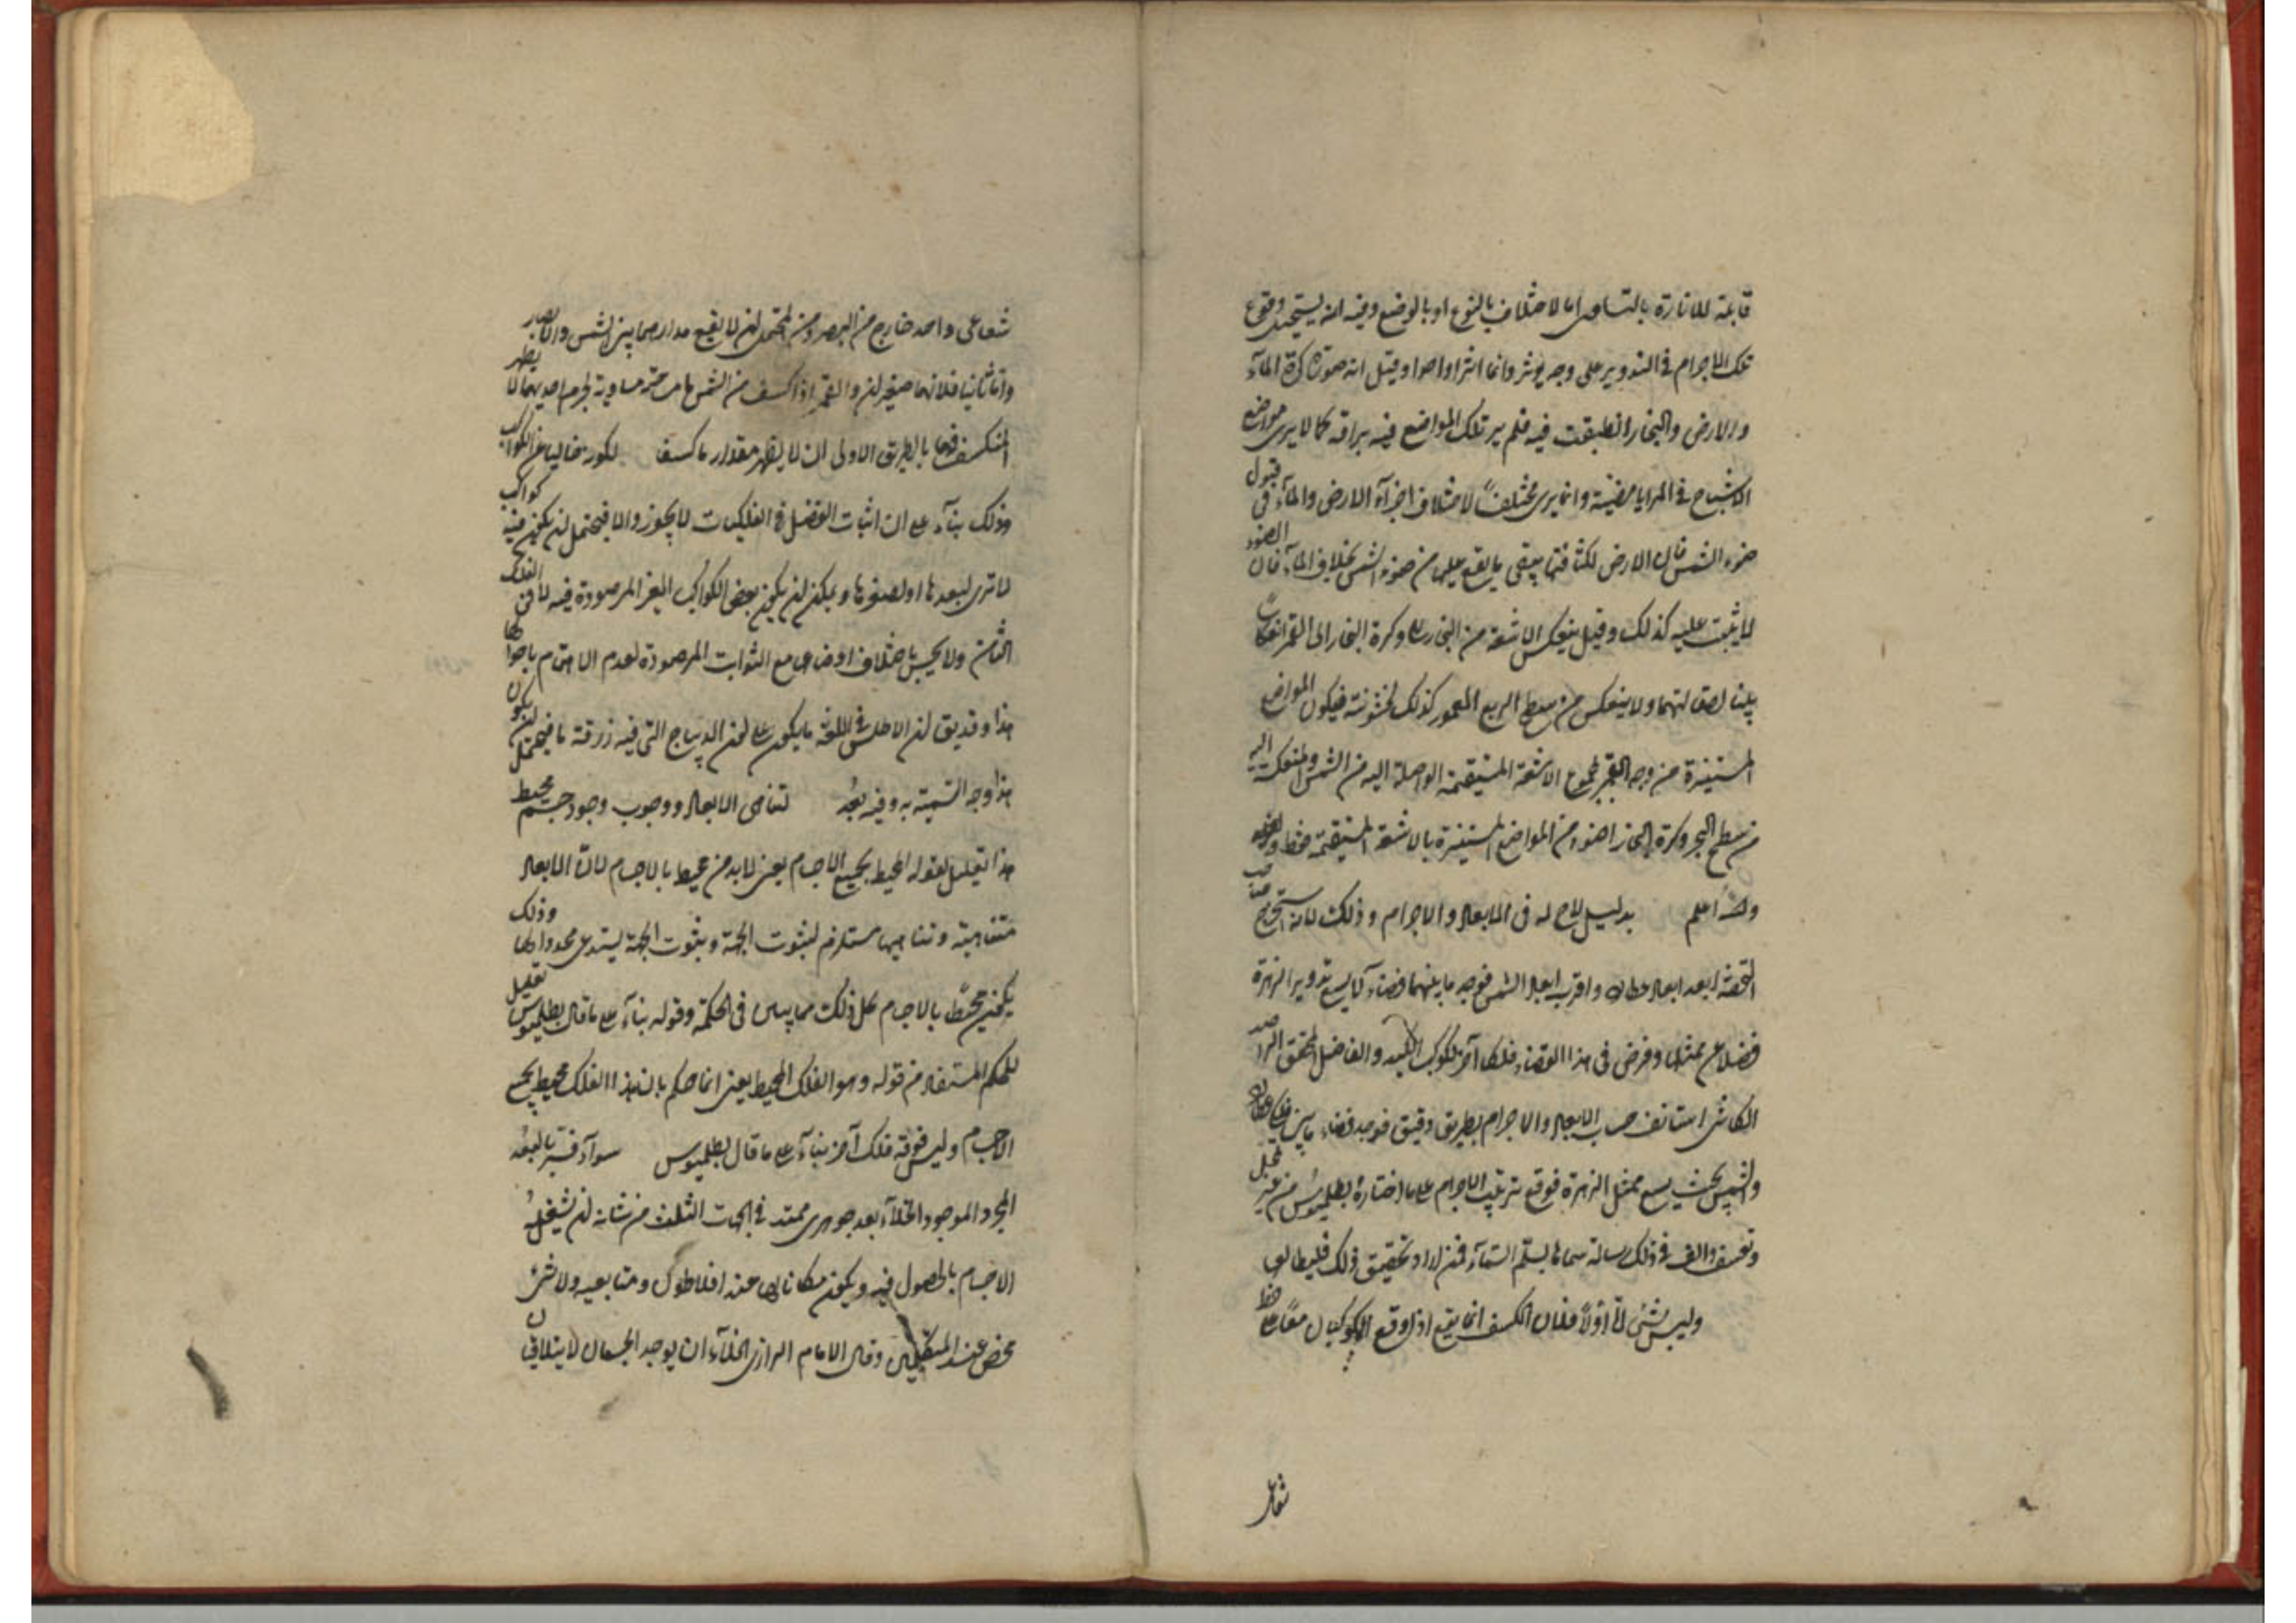 قابلة للانارة بالتساوى اما لاختلاف بالنوع او بالوضع وفيه انه يستحيل وقوع
تلك الاجرام فى التدوير على وجه يوثر دائما اثرا واحدا وقيل انه صورة كرة المآء
والارض والبخار انطبقت فيه فلم ير تلك المواضع فيه براقة كما لا يرى مواضع
الاشباح فى المرايا مضيئة وانما يرى مختلفاً لاختلاف اجزآء الارض والمآء فى قبول
ضوء الشمس فان الارض لكثافتها يبقى ما يقع عليها من ضوء الشمس بخلاف المآء فان الضوء
لا يثبت عليه كذلك وقيل ينعكس الاشعة من البخار وكرة البخار الى القمر انعكاساً
بيّنا لصقالتهما ولا ينعكس من سطح الربع المعمور كذلك لخشونته فيكون المواضع
المستنيرة من وجه القمر بمجموع الاشعة المستقيمة الواصلة اليه من الشمس والمنعكسة اليه
من سطح البحر وكرة البخار اضوء من المواضع المستنيرة بالاشعة المستقيمة فقط
والله اعلم بدليل لاح له فى الابعاد والاجرام وذلك لانه استخرج صاحب
التحفة ابعد ابعاد عطارد واقرب ابعاد الشمس فوجد ما بينهما فضآء لا يسع تدوير الزهرة
فضلا عن ممثلها وفرض فى هذا الفضاء فلكا آخر لكوكب والفاضل المحقق الراصد
الكاشى استانف حساب الابعاد والاجرام بطريق دقيق فوجد فضاء ما بين فلكى عطارد
والشمس بحيث يسع ممثل الزهرة فوقع ترتيب الاجرام على ما اختاره بطلميوس من غير تمحّل
وتعسف والف فى ذلك رسالة سماها بسلّم السمآء فمن اراد تحقيق ذلك فليطالعها
وليس بشئ امّا اوّلاً فلان الكسف انما يقع اذا وقع الكوكبان معاً على خط
شعاعى
شعاعى واحد خارج من البصر ومن المحتمل ان لا يقع مدارهما بين الشمس والابصار
وامّا ثانيا فلانهما صغيران والقمر اذا كسف من الشمس مساحة مساوية لجرم احديهما لا يظهر
المنكسف فهما بالطريق الاولى ان لا يظهر مقدار ما كسف لكونه خاليا عن الكواكب
وذلك بنآء على ان اثبات الفضل فى الفلكيات لا يجوز والا فيحتمل ان يكون فيه كواكب
لا ترى لبعدها او لصغرها ويمكن ان يكون بعض الكواكب الغير المرصودة فيه لا فى الفلك
الثامن ولا يحس باختلاف اوضاعها مع الثوابت المرصودة لعدم الاهتمام باحوالها
هذا وقد يق ان الاطلس فى اللغة ما يكون على لون الديباج التى فيه زرقة ما فيحتمل ان يكون
هذا وجه التسمية به وفيه بُعد لتناهى الابعاد ووجوب وجود جسم محيط
هذا تعليل لقوله المحيط بجميع الاجسام يعنى لابد من محيط بالاجسام لانّ الابعاد
متناهية وتناهيها مستلزم لثبوت الجهة وثبوت الجهة يستدعى محددا لها وذلك
يكون محيطاً بالاجسام كل ذلك مما يبيّن فى الحكمة وقوله بنآء على ما قال بطلميوس تعليل
للحكم المستفاد من قوله وهو الفلك المحيط يعنى انما حكم بان هذا الفلك محيط بجميع
الاجسام وليس فوقه فلك آخر بنآء على ما قال بطلميوس سوآء فسّر بالبعد
المجرد الموجود الخلآء بعد جوهرى ممتد فى الجهات الثلث من شانه ان يشغله
الاجسام بالحصول فيه ويكون مكانا لها عند افلاطون ومتابعيه ولا شئ
محض عند المتكلمين وقال الامام الرازى الخلآء ان يوجد الجسمان لا يتلاقيان